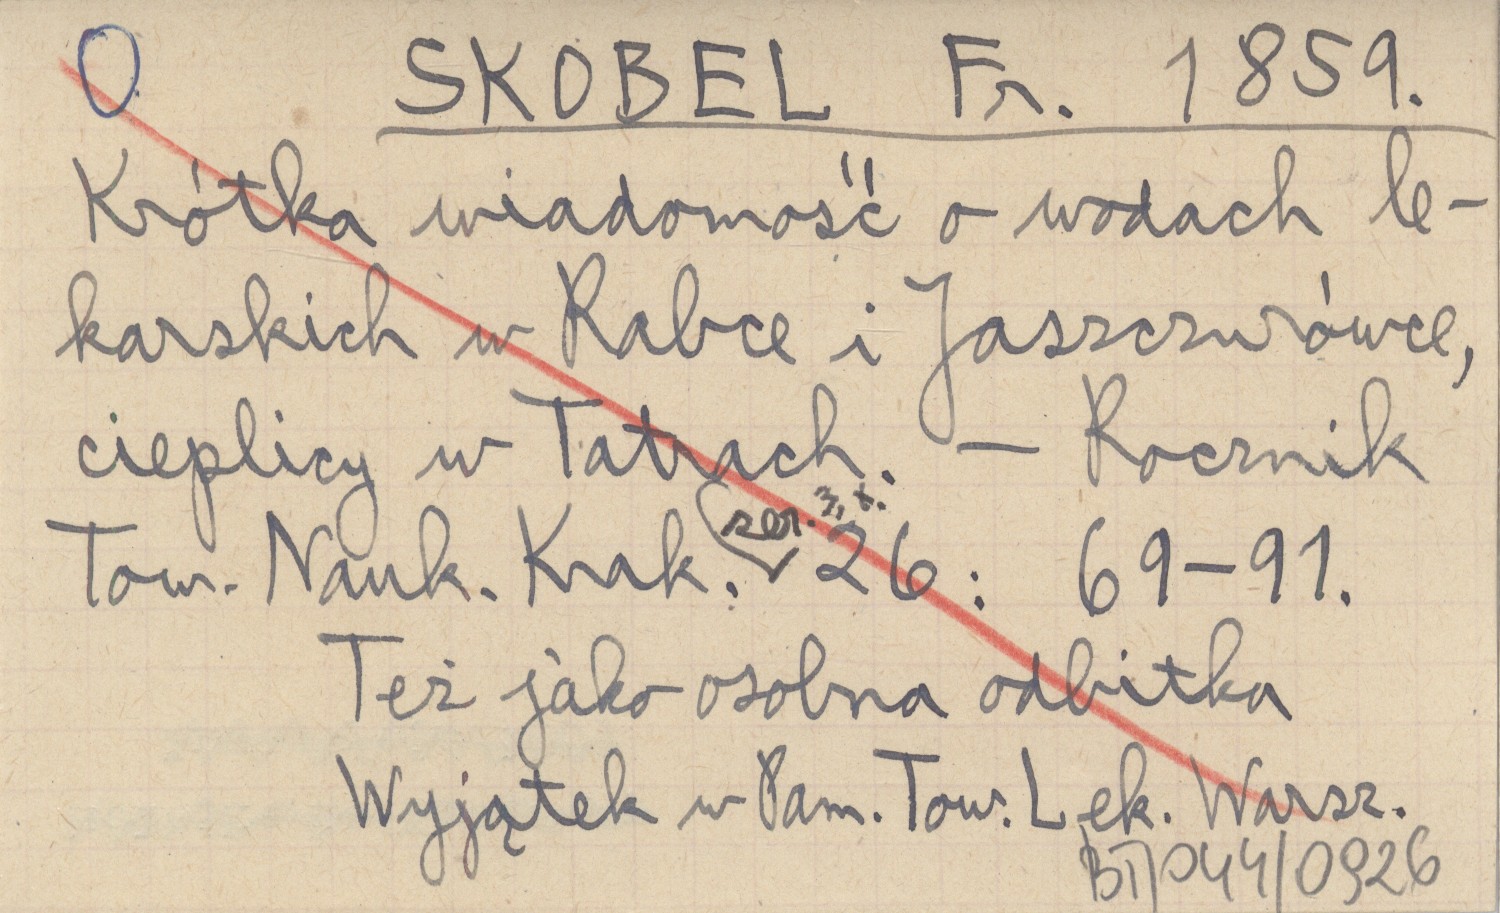 O SKOBEL Fr. 1859.
Krótka wiadomość o wodach le-
karskich w Rabce i Jaszczurówce,
cieplicy w Tatrach. — Rocznik
ser. 3, t.
Tow. Nauk. Krak. 26: 69-91.
Też jako osobna odbitka
Wyjątek w Pam. Tow. Lek. Warsz.
BT/044/0926